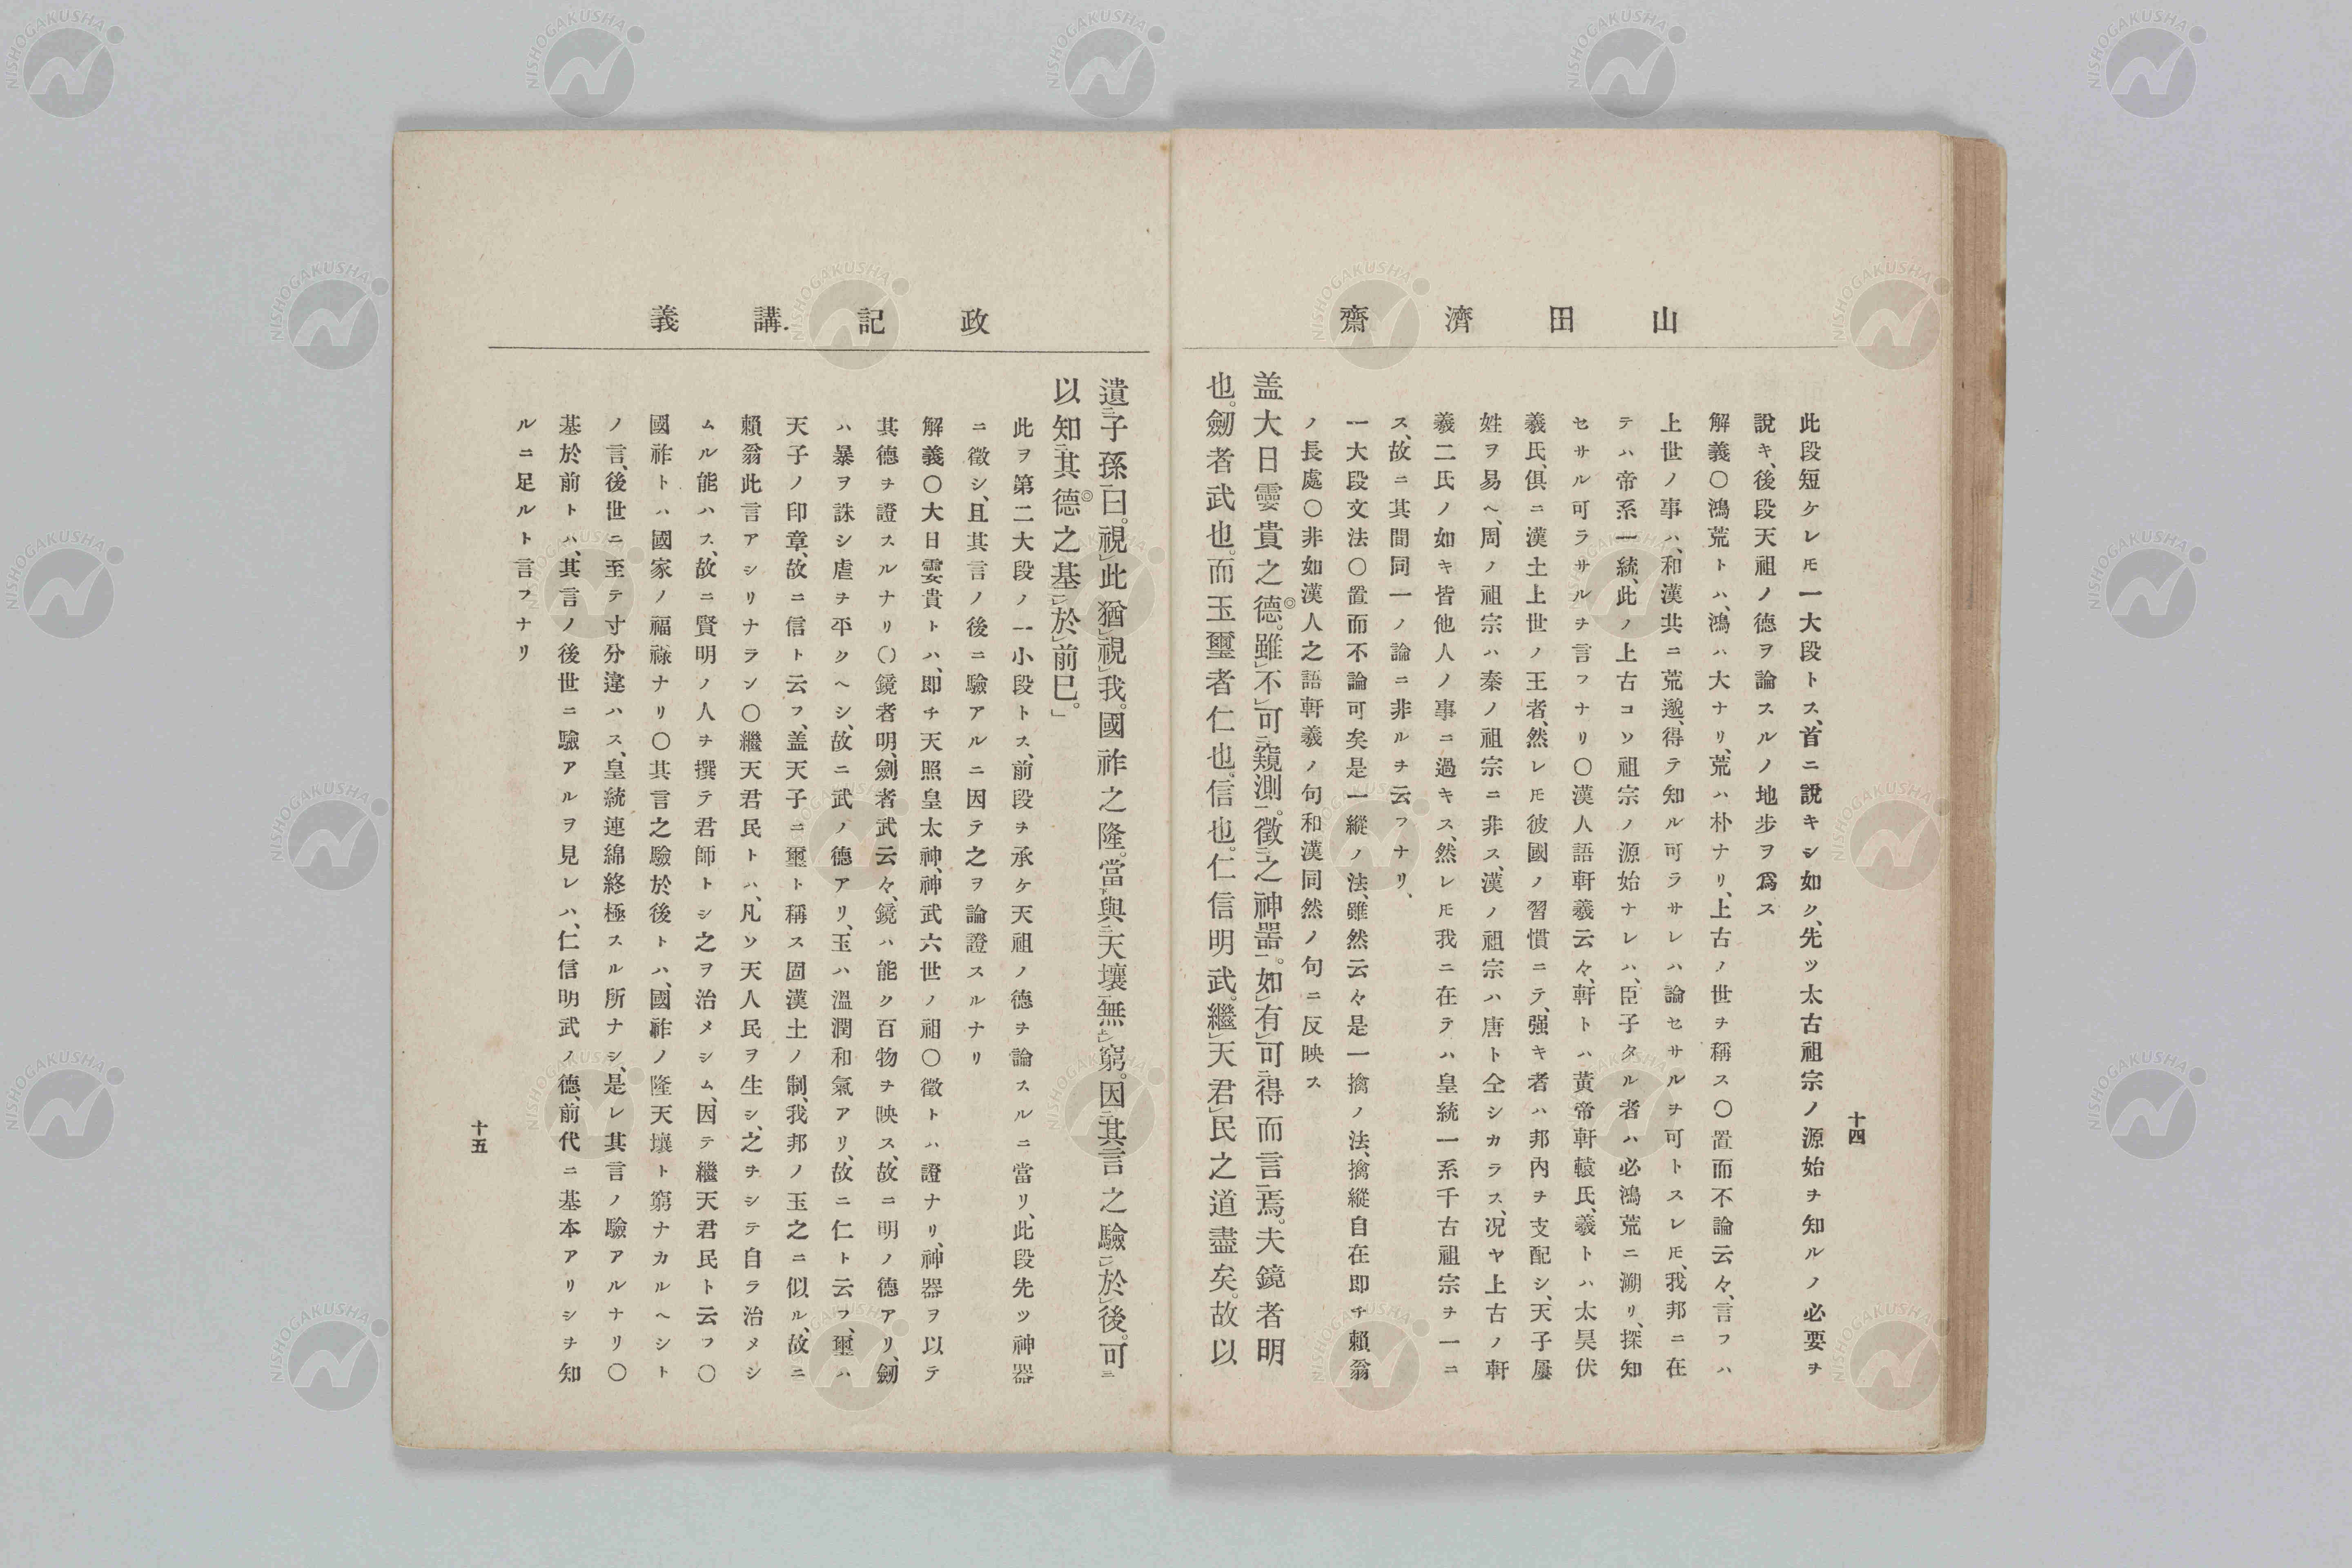 山田濟齋
十四
此段短ケレ𪜈一大段トス、首ニ說キシ如ク、先ツ太古祖宗ノ源始ヲ知ルノ必要ヲ
說キ、後段天祖ノ德ヲ論スルノ地步ヲ爲ス
解義〇鴻荒トハ、鴻ハ大ナリ、荒ハ朴ナリ、上古ノ世ヲ稱ス〇置而不論云々、言フハ
上世ノ事ハ、和漢共ニ荒邈、得テ知ル可ラサレハ論セサルヲ可トスレ𪜈、我邦ニ在
テハ帝系一統、此ノ上古コソ祖宗ノ源始ナレハ、臣子タル者ハ必鴻荒ニ溯リ、探知
セサル可ラサルヲ言フナリ〇漢人語軒羲云々、軒トハ黃帝軒轅氏、羲トハ太昊伏
羲氏、俱ニ漢土上世ノ王者、然レ𪜈彼國ノ習慣ニテ、强キ者ハ邦內ヲ支配シ、天子屢
姓ヲ易ヘ、周ノ祖宗ハ秦ノ祖宗ニ非ス、漢ノ祖宗ハ唐ト仝シカラス、况ヤ上古ノ軒
羲二氏ノ如キ皆他人ノ事ニ過キス、然レ𪜈我ニ在テハ皇統一系千古祖宗ヲ一ニ
ス、故ニ其間同一ノ論ニ非ルヲ云フナリ、
一大段文法〇置而不論可矣是一縱ノ法、雖然云々是一擒ノ法、擒縱自在即チ賴翁
ノ長處〇非如漢人之語軒羲ノ句和漢同然ノ句ニ反映ス
盖大日孁貴之德。雖レ不レ可二窺測一。徵二之神器一。如レ有レ可二得而言一焉。夫鏡者明
也。劒者武也。而玉璽者仁也。信也。仁信明武。繼レ天君レ民之道盡矣。故以
政記講義
遺二子孫一曰。視レ此猶レ視レ我。國祚之隆。當下與二天壤一無上レ窮。因二其言之驗二於後一。可三
以知二其德之基二於前一已。」
此ヲ第二大段ノ一小段トス、前段ヲ承ケ天祖ノ德ヲ論スルニ當リ、此段先ツ神器
ニ徵シ、且其言ノ後ニ驗アルニ因テ之ヲ論證スルナリ
解義〇大日孁貴トハ、即チ天照皇太神、神武六世ノ祖〇徵トハ證ナリ、神器ヲ以テ
其德ヲ證スルナリ〇鏡者明、劍者武云々、鏡ハ能ク百物ヲ映ス、故ニ明ノ德アリ、劒
ハ暴ヲ誅シ虐ヲ平クヘシ、故ニ武ノ德アリ、玉ハ溫潤和氣アリ、故ニ仁ト云フ、璽ハ
天子ノ印章、故ニ信ト云フ、盖天子ニ璽ト稱ス固漢土ノ制、我邦ノ玉之ニ似ル、故ニ
賴翁此言アシリナラン〇繼天君民トハ、凡ソ天人民ヲ生シ、之ヲシテ自ラ治メシ
ムル能ハス、故ニ賢明ノ人ヲ撰テ君師トシ之ヲ治メシム、因テ繼天君民ト云フ〇
國祚トハ國家ノ福祿ナリ〇其言之驗於後トハ、國祚ノ隆天壤ト窮ナカルヘシト
ノ言、後世ニ至テ寸分違ハス、皇統連綿終極スル所ナシ、是レ其言ノ驗アルナリ〇
基於前トハ、其言ノ後世ニ驗アルヲ見レハ、仁信明武ノ德、前代ニ基本アリシヲ知
ルニ足ルト言フナリ
十五